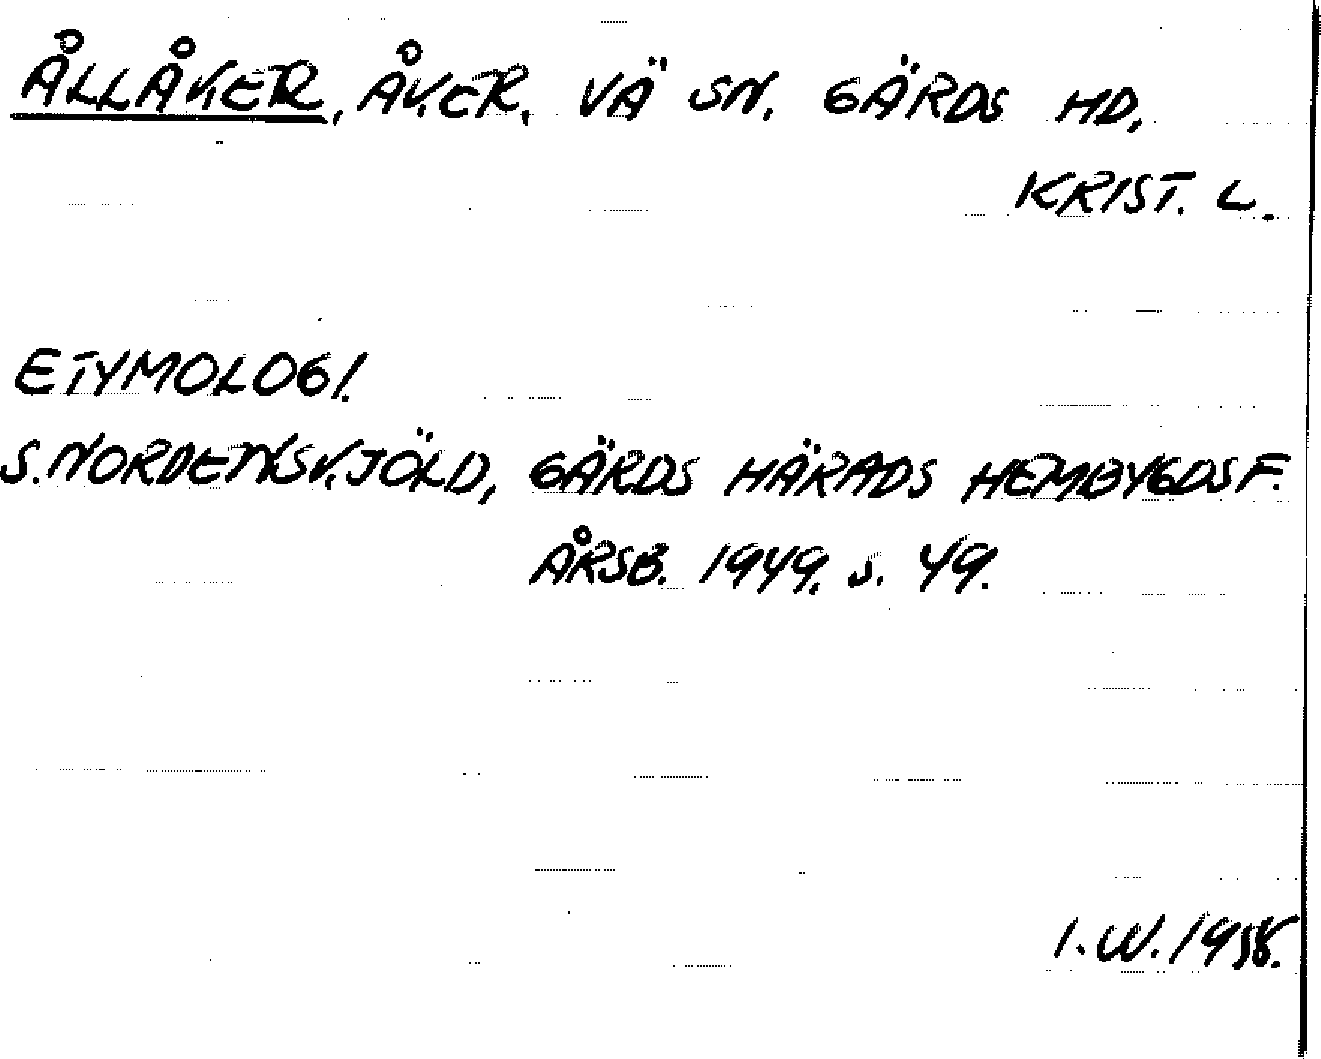 ÅLLÅKER, ÅKER, VÄ SN. GÄRDS HD,
KRIST. L.
ETYMOLOGI.
S. NORDENSKJÖLD, GÄRDS HÄRADS HEMBYGDSF.
ÅRSB. 1949. S. 49.
I. W. 1958.